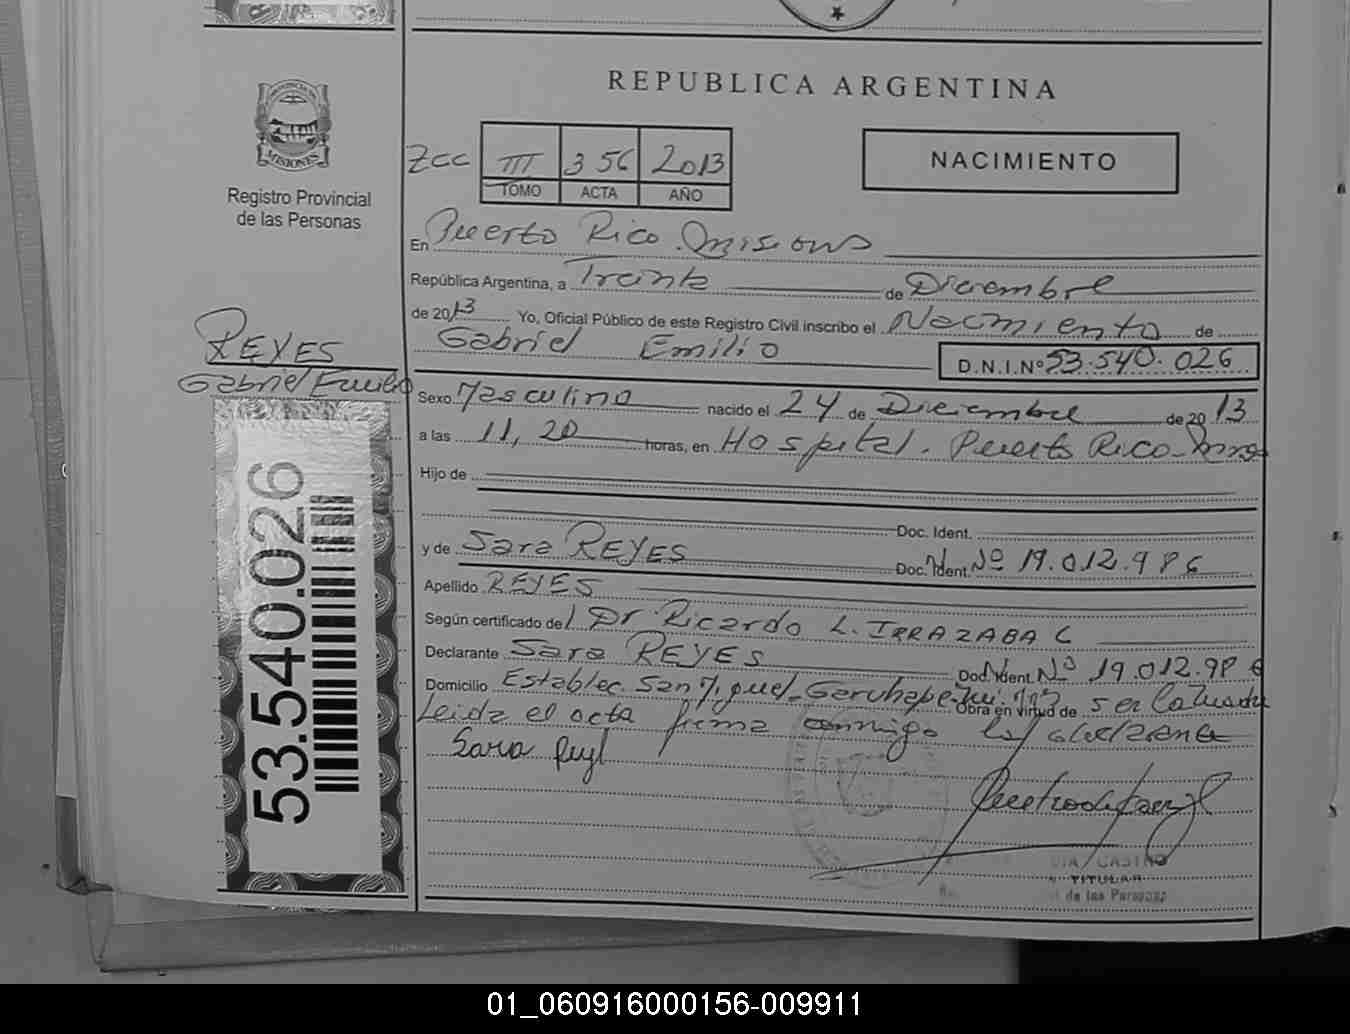 REPUBLICA ARGENTINA
PROVINCIA DE
MISIONES
Registro Provincial
de las Personas
NACIMIENTO
III 356 2013
TOMO ACTA AÑO
En Puerto Rico. Misiones
República Argentina, a Treinta de Diciembre
de 2013 Yo, Oficial Público de este Registro Civil inscribo el Nacimiento de
Gabriel Emilio D.N.I.Nº 53.540.026
REYES
Gabriel Emilio
53.540.026
Sexo Masculino nacido el 24 de Diciembre de 2013
a las 11,20 horas, en Hospital. Puerto Rico-
Hijo de
Doc. Ident.
y de Sara REYES Doc. Ident. Nº 19.012.986
Apellido REYES
Según certificado del Dr Ricardo L. IRRAZABAL
Declarante Sara REYES Doc. Ident. Nº 19.012.986
Domicilio Establec. San Miguel-Garuhape Obra en virtud de ser
Leida el acta firma conmigo la
Sara
CASTRO
TITULAR
de las Personas
01_060916000156-009911